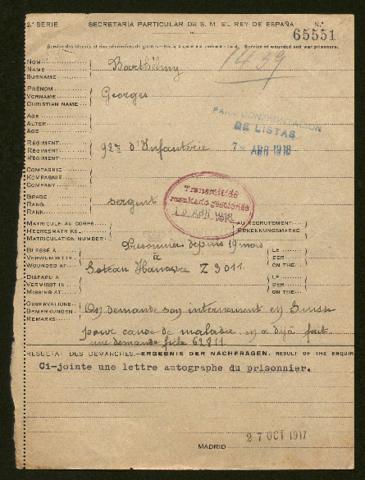 2ª SERIE SECRETARÍA PARTICULAR DE S. M. EL REY DE ESPAÑA N.º
65551
Service of wounded and war prisoners.
1439
NOM
NAME
SURNAME
Barthélmy
PRÉNOM
VORNAME
CHRISTIAN NAME
Georges
AGE
ALTER
AGE
PARA CONFRONTACION
DE LISTAS
7 ABR 1918
RÉGIMENT
REGIMENT
REGIMENT
92me d'Infanterie
COMPAGNIE
KOMPAGNIE
COMPANY
GRADE
RANG
RANK
sergent
Transmitido
resultado gestiones
ABR 1918
MATRICULE AU CORPS
HEERESMATR KEL
MATRICULATION NUMBER
AU RECRUTEMENT
ERKENNUNGSMARKE
Prisonnier depuis 19 mois
BLESSÉ À
VERWUNDET IN
WOUNDED AT
à
Z 3011
LE
DER
ON THE
DISPARU À
VERMISST IN
MISSING AT
LE
DER
ON THE
OBSERVATIONS
BEMERKUNGEN
REMARKS
On demande son internement en Suisse
pour cause de maladie. on a déjà fait
une demande fiche 62811
RESULTAT DES DÉMARCHES.—ERGEBNIS DER NACHFRAGEN. RESULT OF THE ENQUIR
Ci-jointe une lettre autographe du prisonnier.
MADRID
27 OCT 1917